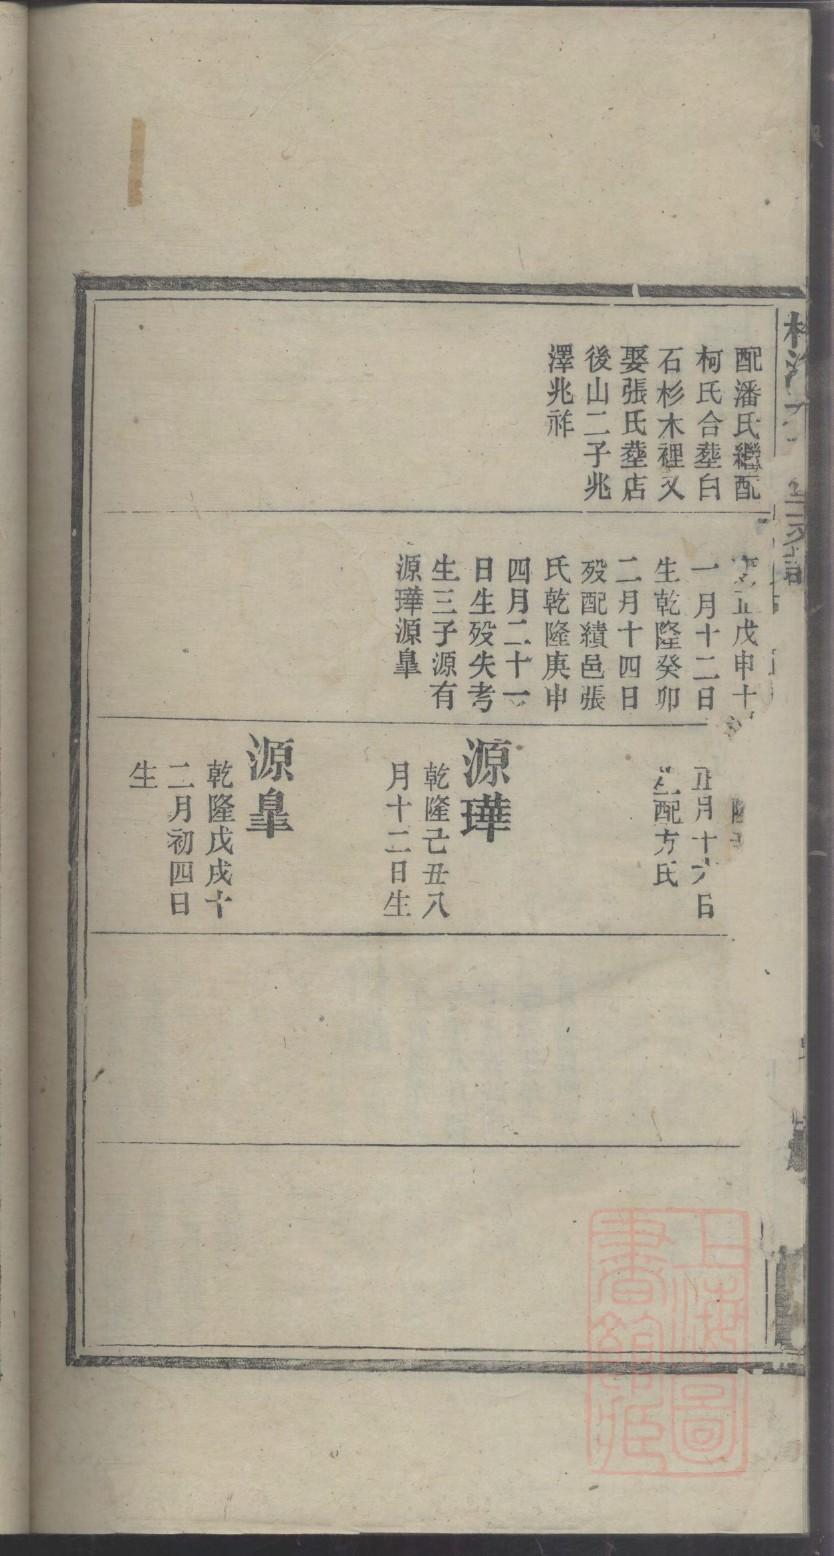 配潘氏繼配
柯氏合塟白
石杉木裡又
娶張氏塟店
後山二子兆
澤兆祥
正戊申十
一月十二日
生乾隆癸卯
二月十四日
歿配績邑張
氏乾隆庚申
四月二十一
日生歿失考
生三子源有
源瑋源臯
正月十六日
生配方氏
源瑋
乾隆己丑八
月十二日生
源臯
乾隆戊戌十
二月初四日
生
上海圖
書館藏